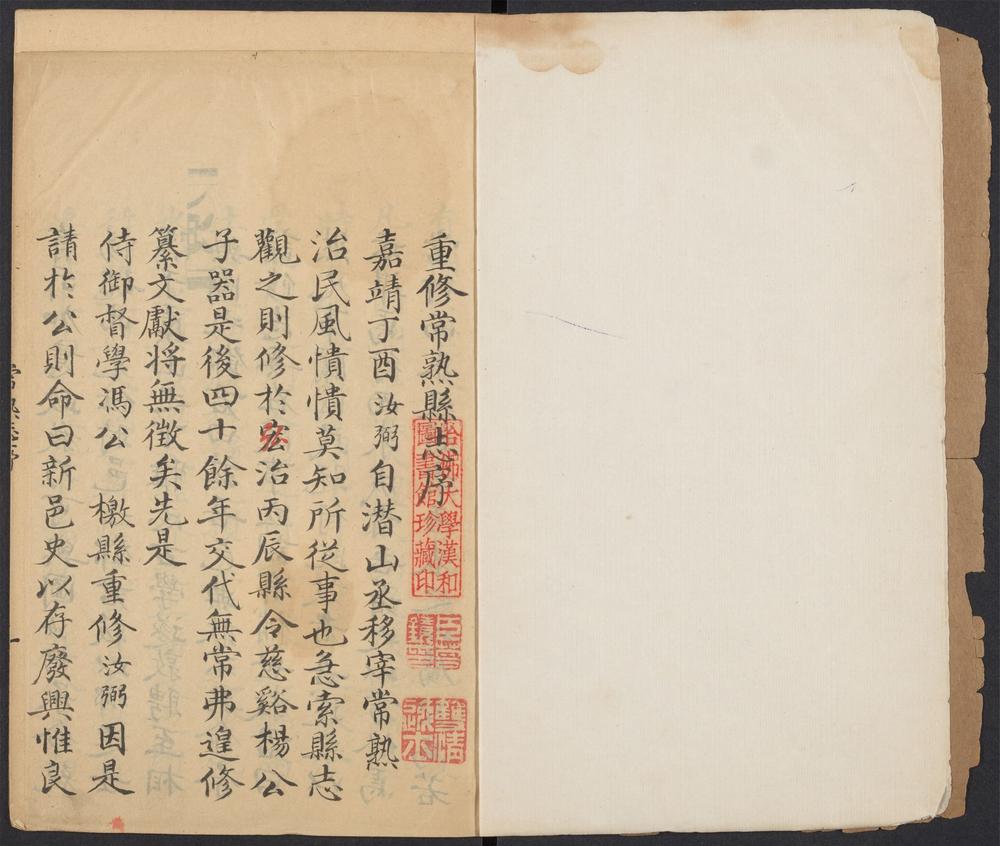 重修常熟縣志序
嘉靖丁酉汝弼自潛山丞移宰常熟
治民風憒憒莫知所從事也急索縣志
觀之則修於宏治丙辰縣令慈谿楊公
子器是後四十餘年交代無常弗遑修
纂文獻将無徵矣先是
侍御督學馮公 檄縣重修汝弼因是
請於公則命曰新邑史以存廢興惟良
哈佛大學漢和
圖書館珍藏印